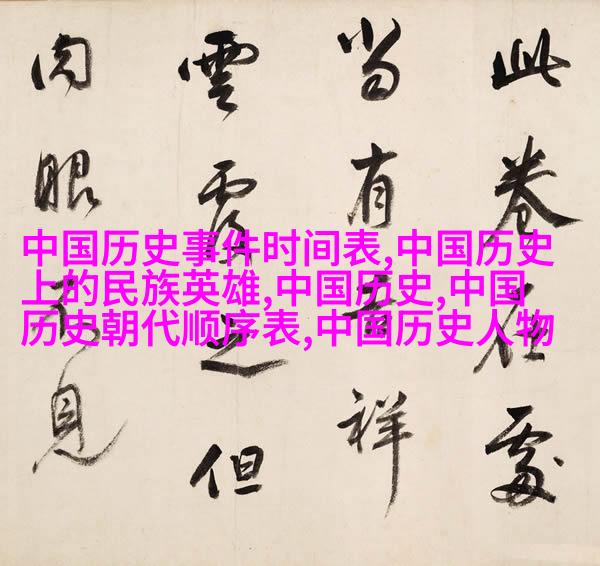 此卷在處
當有吉祥
雲覆之但
肉眼不見
中国历史事件时间表,中国历史
上的民族英雄,中国历史,中国
历史朝代顺序表,中国历史人物